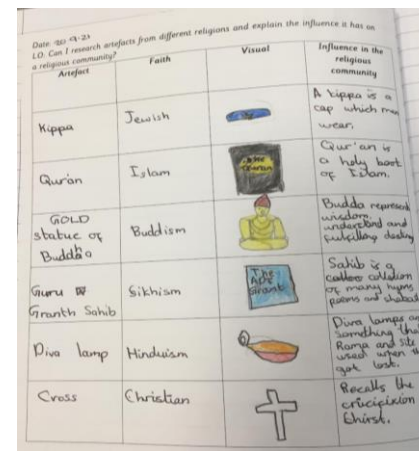 Date: 20.9.23
LO: Can I research artefacts from different religions and explain the influence it has on
a religious community?
Artefact Faith Visual Influence in the religious community
Kippa Jewish A kippa is a
cap which men
wear.
Qur'an Islam Qur'an is
a holy book
of Islam.
GOLD
statue of
Buddha
Buddism Budda represent
wisdom,
understand and
fulfilling destiny
Guru
Granth Sahib
Sikhism The
Granth
Sahib is a
collection
of many hymns
poems and shabad
Diva lamp Hinduism Diva lamps are
something that
Rama and Sita
used when
got lost.
Cross Christian Recalls the
crucifixion